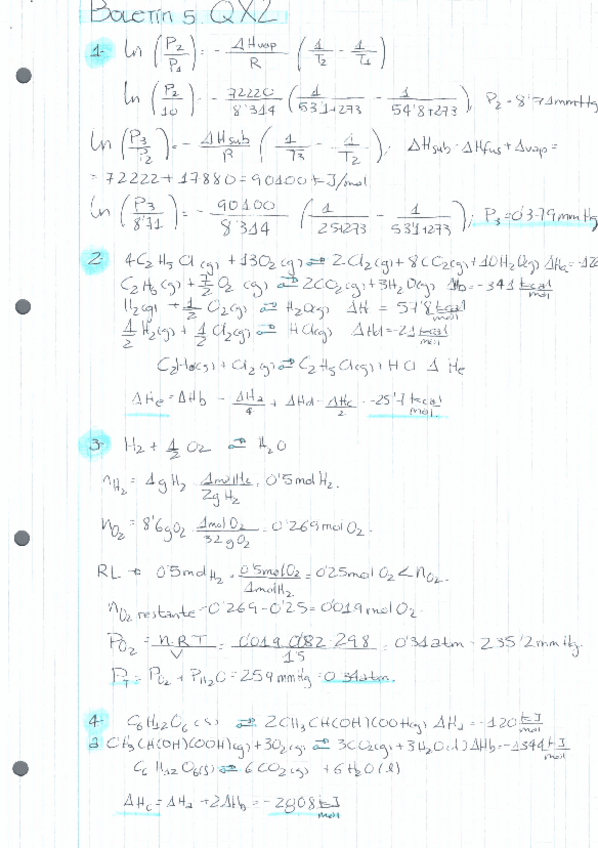 Boletín 5 QX2
1- ln (P2/P1) = - ΔHvap/R (1/T2 - 1/T1)
ln (P2/10) = - 72220/8'314 (1/53'1+273 - 1/54'8+273); P2 = 8'71mmHg
ln (P3/P2) = - ΔHsub/R (1/T3 - 1/T2); ΔHsub = ΔHfus + Δvap =
= 72222 + 17880 = 90100 J/mol
ln (P3/8'71) = - 90100/8'314 (1/25+273 - 1/53'1+273); P3 = 0'379 mmHg
2- 4C2H5Cl(g) + 13O2(g) ⇌ 2Cl2(g) + 8CO2(g) + 10H2O(g) ΔHa = -
C2H6(g) + 7/2 O2(g) ⇌ 2CO2(g) + 3H2O(g) ΔHb = -341 kcal/mol
H2(g) + 1/2 O2(g) ⇌ H2O(g) ΔH = 57'8 kcal/mol
1/2 H2(g) + 1/2 Cl2(g) ⇌ HCl(g) ΔHd = -21 kcal/mol
C2H6(g) + Cl2(g) ⇌ C2H5Cl(g) + HCl ΔHe
ΔHe = ΔHb - ΔHa/4 + ΔHd - ΔHc/2 = -25'1 kcal/mol
3- H2 + 1/2 O2 ⇌ H2O
nH2 = 1g H2 · 1mol H2/2g H2 = 0'5 mol H2.
nO2 = 8'6g O2 · 1mol O2/32g O2 = 0'269 mol O2.
RL → 0'5 mol H2 · 0'5mol O2/1mol H2 = 0'25 mol O2 < nO2.
nO2 restante = 0'269 - 0'25 = 0'019 mol O2.
PO2 = n·R·T/V = 0'019·0'082·298/1'5 = 0'31 atm = 235'2 mmHg.
PT = PO2 + PH2O = 259 mmHg = 0'34 atm.
4- C6H12O6(s) ⇌ 2CH3CH(OH)COOH(g) ΔHa = -120 kJ/mol
CH3CH(OH)COOH(g) + 3O2(g) ⇌ 3CO2(g) + 3H2O(l) ΔHb = -1344 kJ/mol
C6H12O6(s) ⇌ 6CO2(g) + 6H2O(l)
ΔHc = ΔHa + 2ΔHb = -2808 kJ/mol